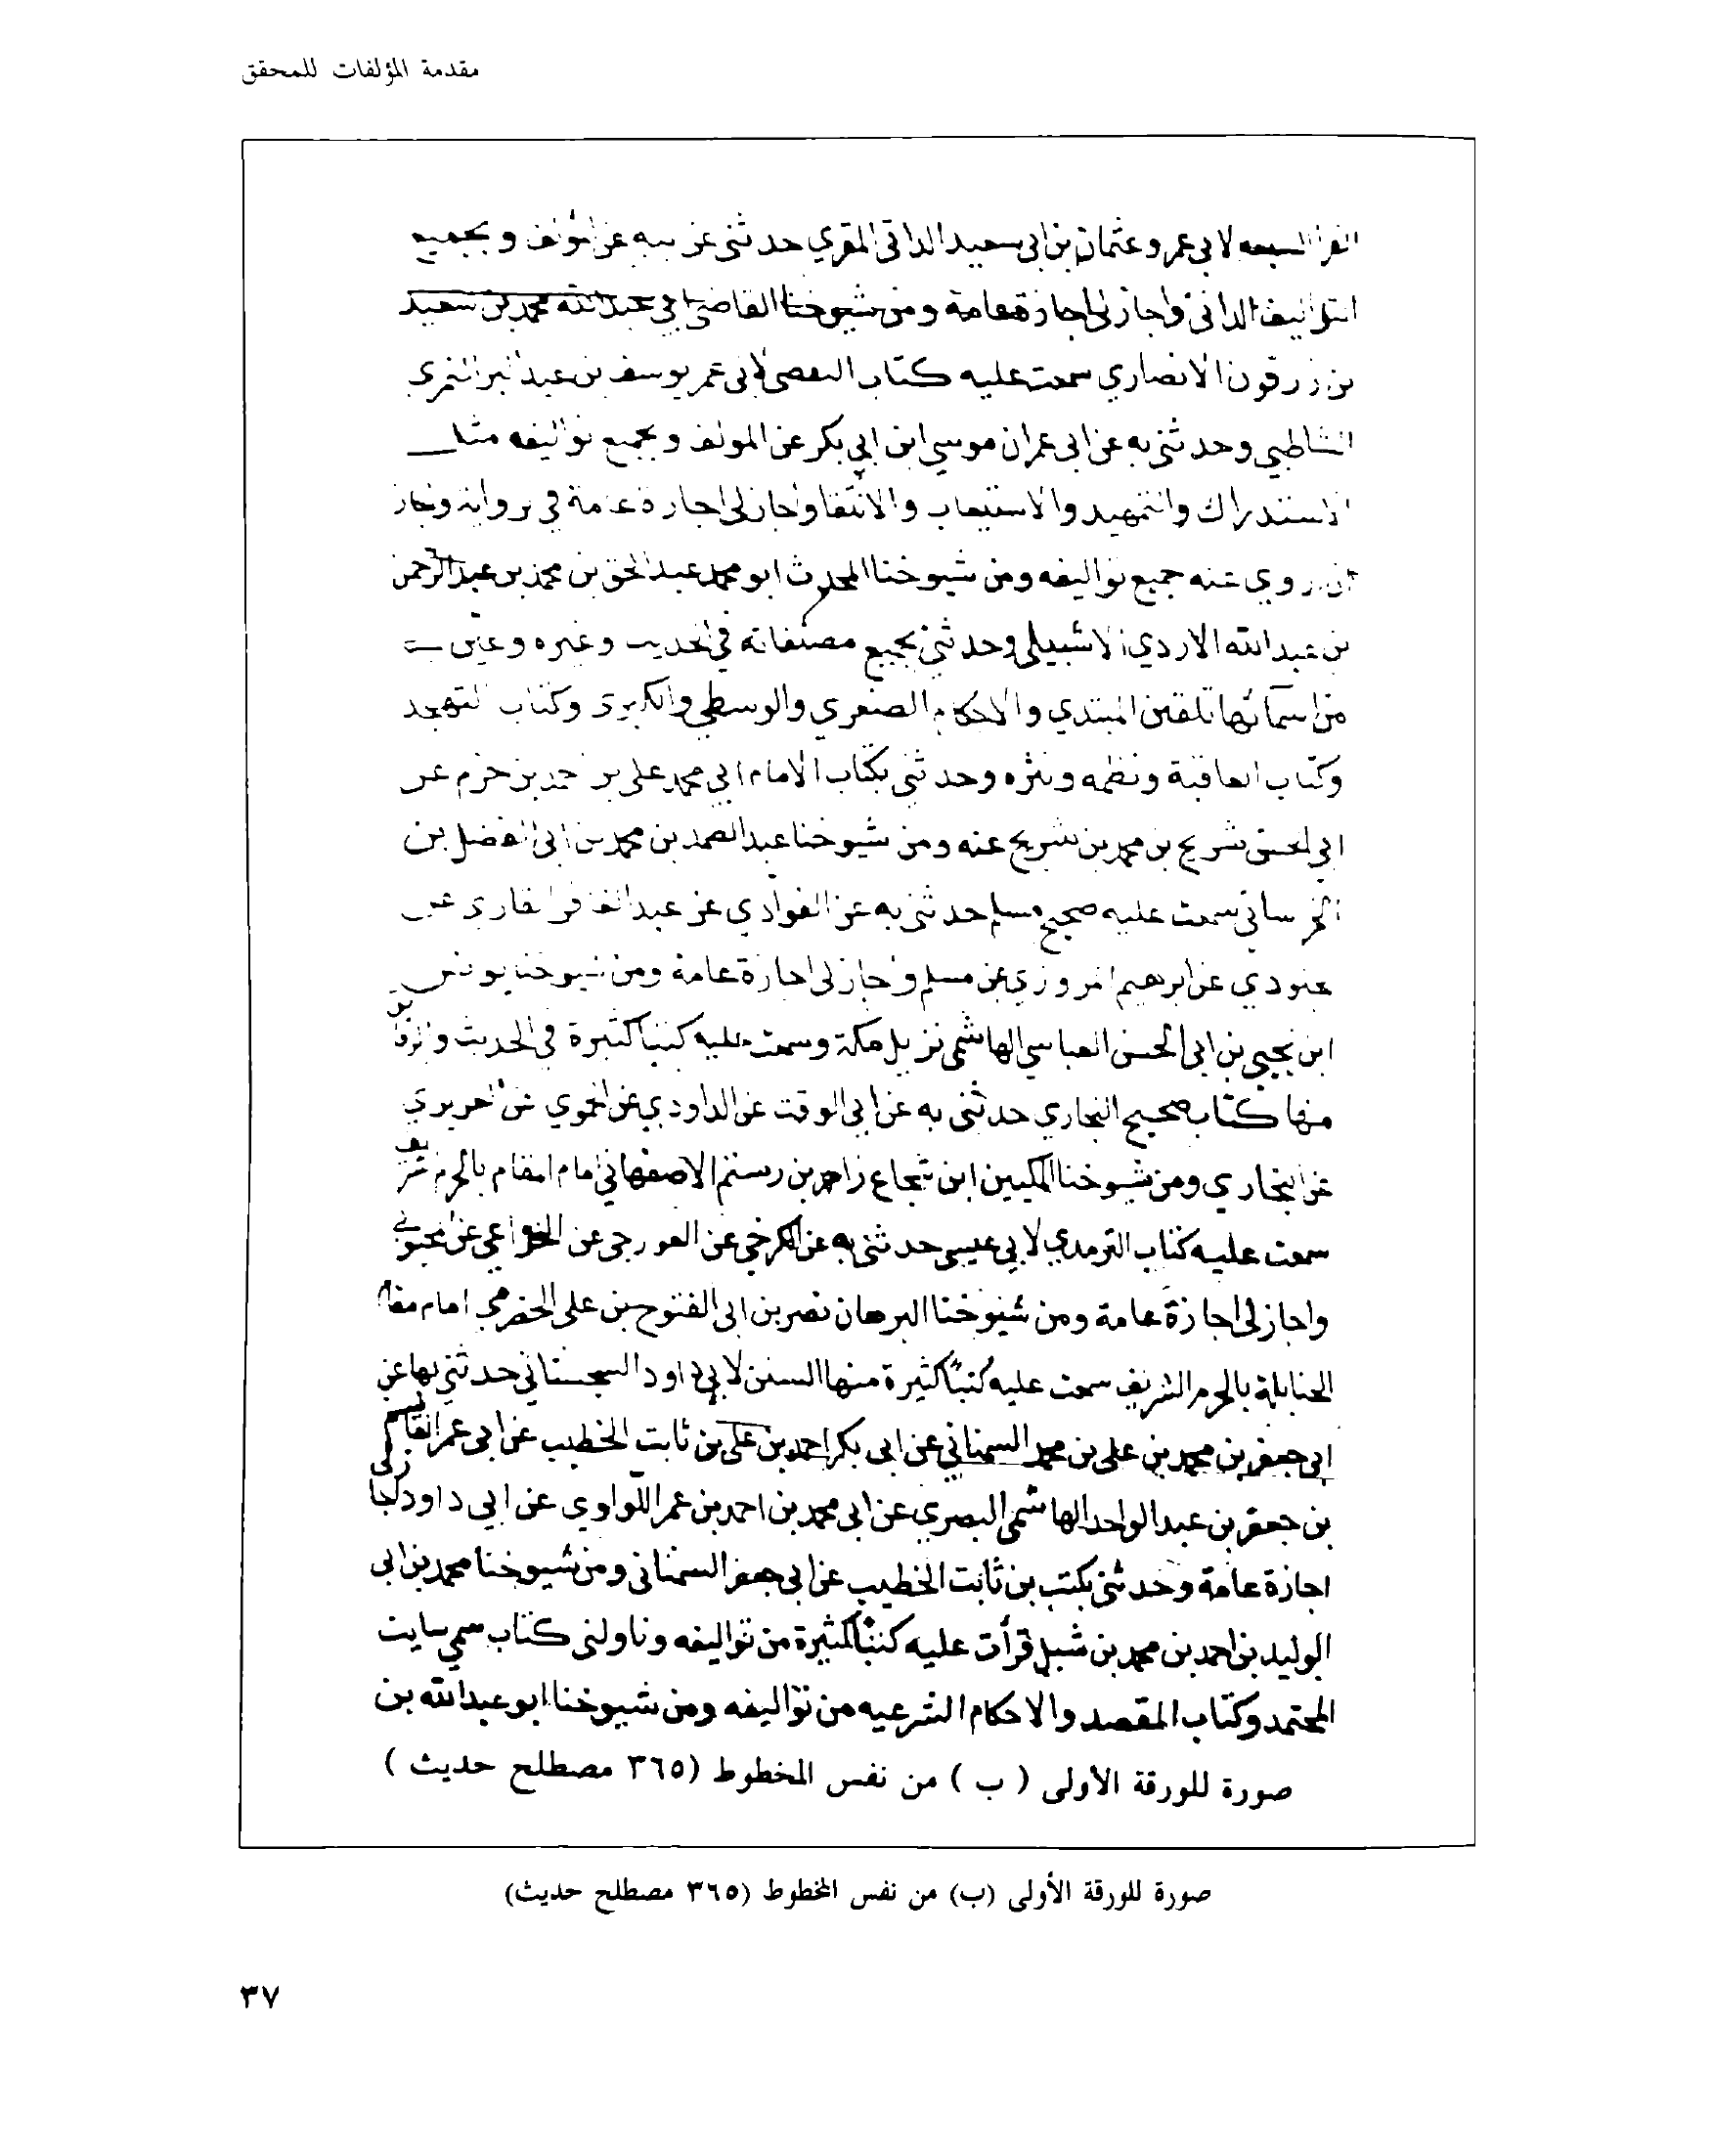 مقدمة المؤلفات للمحقق
السبعه لابي عمرو عثمان بن ابي سعيد الداني المقري حدثني عن عن المؤلف وبجميع
الداني واجازلي اجازة عامة ومن شيوخنا القاضي ابي عبدالله محمد بن سعيد
بن زرقون الانصاري سمعت عليه كتاب التقصي لابي عمر يوسف بن عبد البر النمري
الشاطبي وحدثني به عن ابي عمران موسي ابن ابي بكر عن المولف وبجميع تواليفه مثل
الاستدراك والتمهيد والاستيعاب والانتقا واجازلي اجازة عامة في
عنه جميع تواليفه ومن شيوخنا المحدث ابو محمد عبد الحق بن محمد بن عبد الرحمن
بن عبدالله الازدي الاشبيلي وحدثني بجميع مصنفاته في الحديث وغيره وعين
من اسمائها تلقين المبتدي والاحكام الصغري والوسطي والكبرى وكتاب التهجد
وكتاب العاقبة ونظمه ونثره وحدثني بكتاب الامام ابي محمد علي بن احمد بن حزم عن
ابي الحسن شريح بن محمد بن شريح عنه ومن شيوخنا عبد الصمد بن محمد بن ابي الفضل بن
سمعت عليه صحيح مسلم حدثني به عن عن عبد الغافر عن
عن ابرهيم المروزي عن مسلم واجازلي اجازة عامة ومن شيوخنا يونس
ابن يحيي بن ابي الحسن العباسي الهاشمي نزيل مكة وسمعت عليه كتبا كثيرة في الحديث والرقائق
منها كتاب صحيح البخاري حدثني به عن ابي الوقت عن الداودي عن الحموي عن
عن البخاري ومن شيوخنا المكيين ابن شجاع زاهر بن رستم الاصفهاني امام المقام بالحرم
سمعت عليه كتاب الترمذي لابي عيسي حدثني به عن الكرخي عن عن عن
واجازلي اجازة عامة ومن شيوخنا البرهان نصر بن ابي الفتوح بن علي الحضرمي امام مقام
الحنابلة بالحرم الشريف سمعت عليه كتبا كثيرة منها السنن لابي داود السجستاني حدثني بها عن
ابي جعفر بن محمد بن علي بن محمد السمناني عن ابي بكر احمد بن علي بن ثابت الخطيب عن ابي عمر القاسم
بن جعفر بن عبد الواحد الهاشمي البصري عن ابي محمد بن احمد بن عمر اللواوي عن ابي داود
اجازة عامة وحدثني بكتب بن ثابت الخطيب عن ابي جعفر السمناني ومن شيوخنا محمد بن ابي
الوليد بن احمد بن محمد بن شبل قرأت عليه كتبا كثيرة من تواليفه وناولني كتاب
وكتاب المقصد والاحكام الشرعيه من تواليفه ومن شيوخنا ابو عبدالله بن
صورة للورقة الأولى ( ب ) من نفس المخطوط (٣٦٥ مصطلح حديث )
صورة للورقة الأولى (ب) من نفس المخطوط (٣٦٥ مصطلح حديث)
٣٧